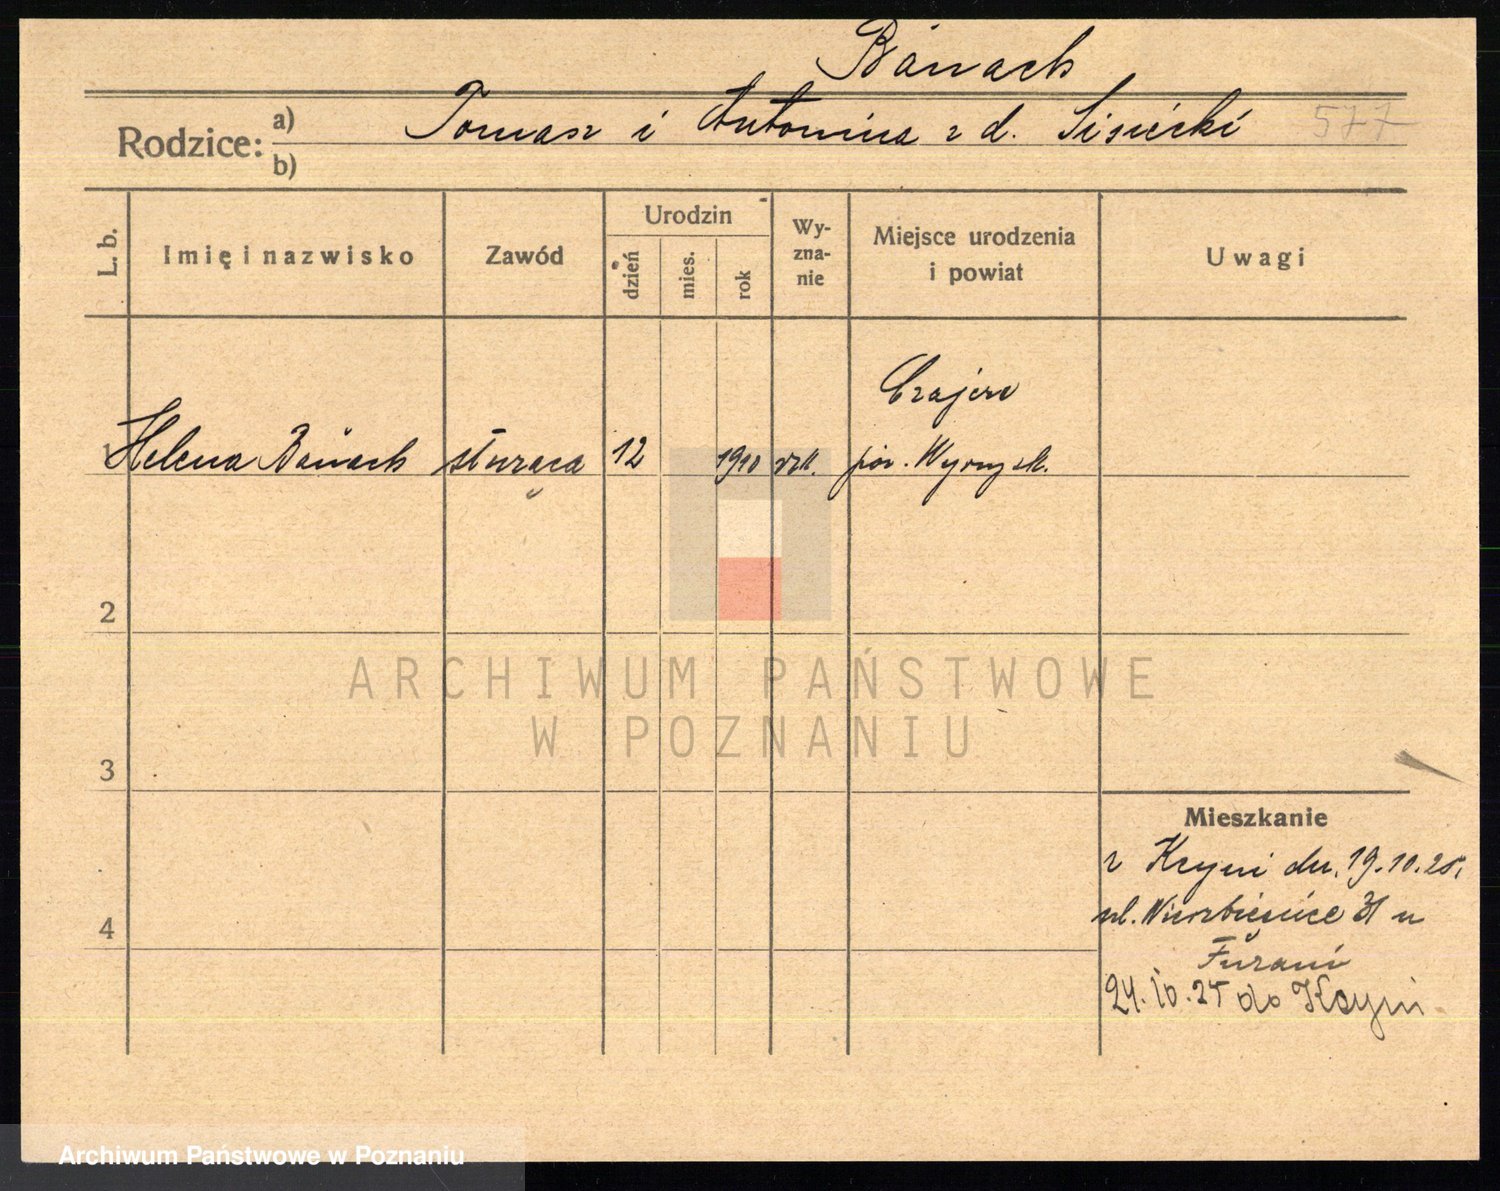 Banach
Rodzice:
a)
Tomasz i Antonina z d. Sisiecki
577
b)
L. b.
Imię i nazwisko
Zawód
Urodzin
dzień
mies.
rok
Wy-
zna-
nie
Miejsce urodzenia
i powiat
Uwagi
Czajcze
1 Helena Banach służąca 12 1910 rzk. pow. Wyrzysk.
2
3
4
Mieszkanie
z Kcyni dn. 19.10.25.
ul. Wierzbięcice 31 u
24.10.25 do Kcyni
ARCHIWUM PAŃSTWOWE
W POZNANIU
Archiwum Państwowe w Poznaniu